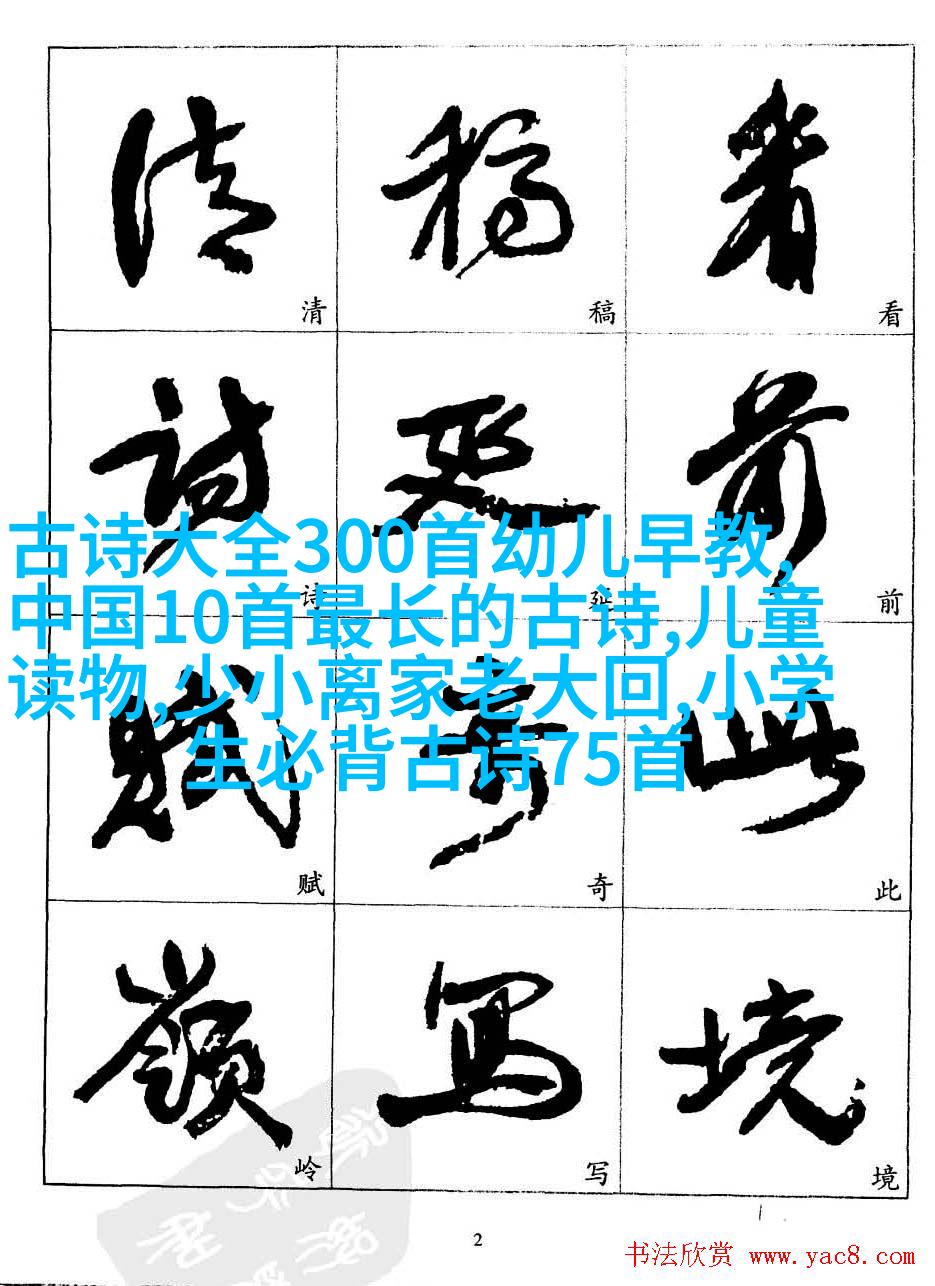 清 稿 看
清 稿 看
詩 延 前
诗 延 前
古诗大全300首幼儿早教,
中国10首最长的古诗,儿童
读物,少小离家老大回,小学
生必背古诗75首
賦 奇 此
赋 奇 此
嶺 寫 境
岭 写 境
2
书法欣赏 www.yac8.com